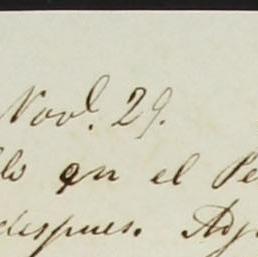 Novl. 29.
llo en el Pe
despues. Adj